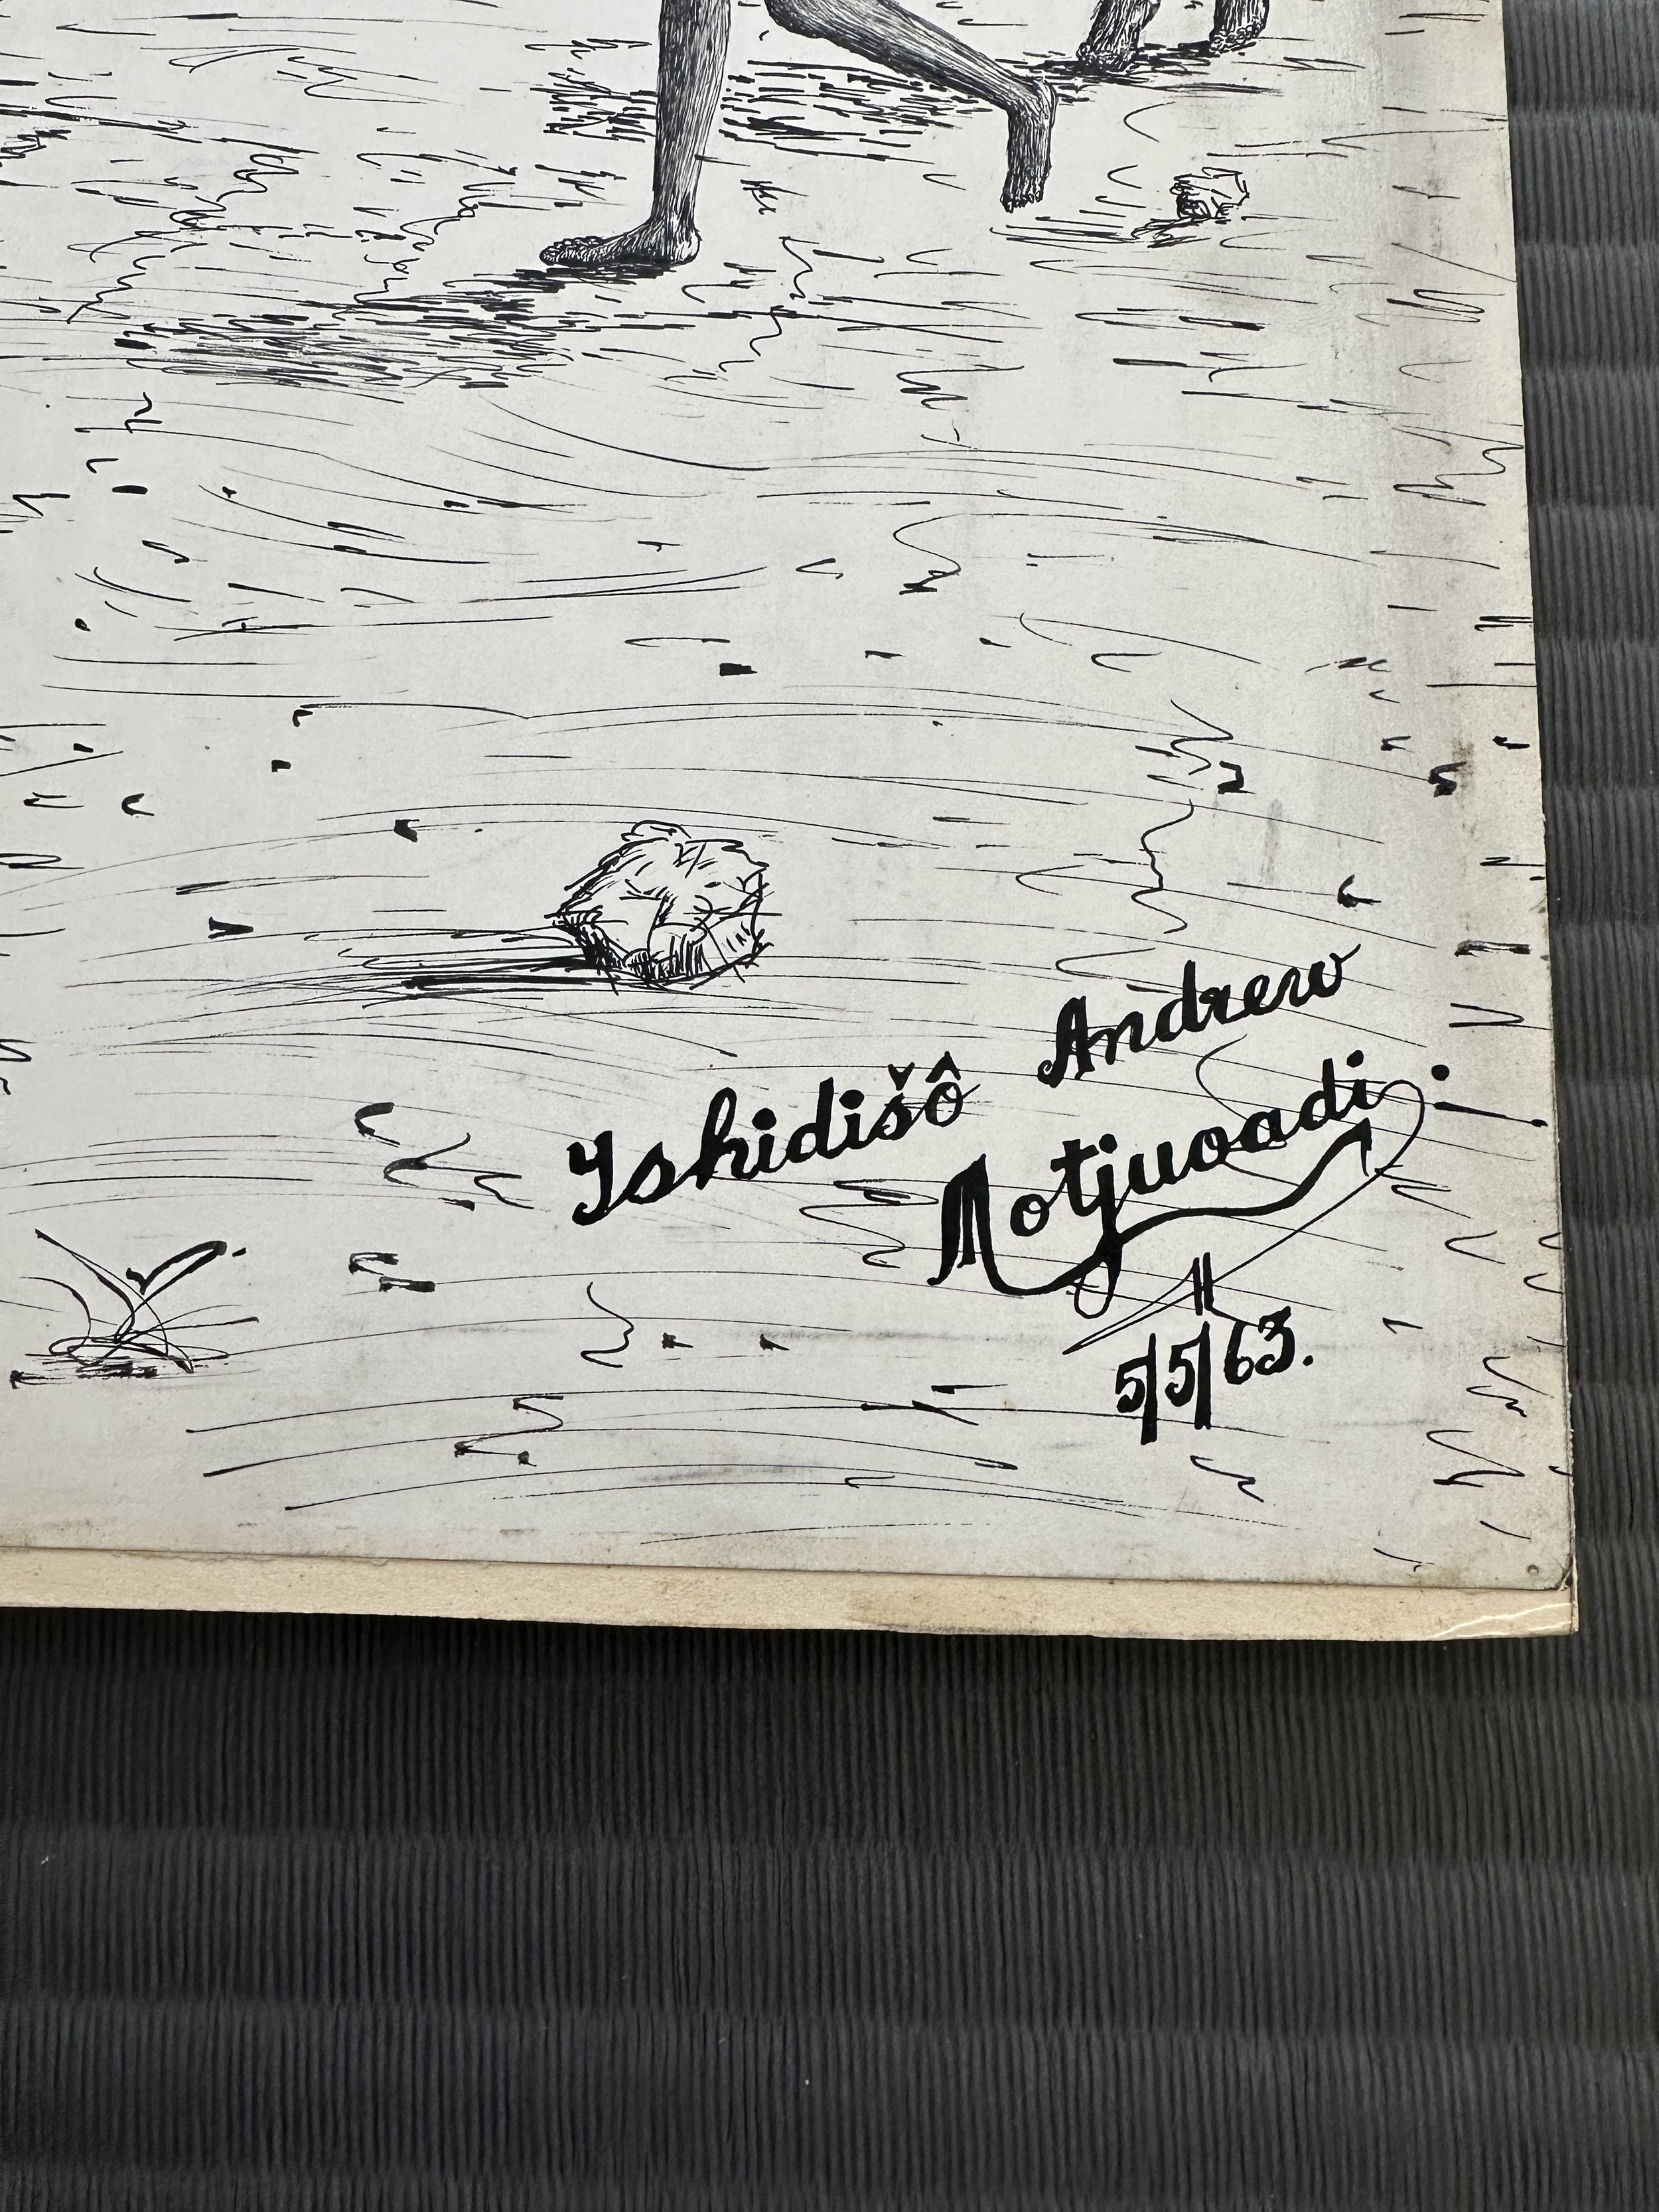 Tshidišô Andrew
Motjuoadi.
5/5/63.